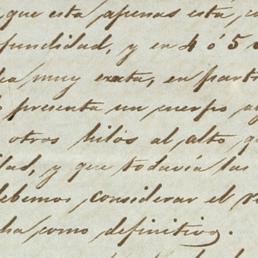 que esta apenas esta, c
fundidad, y en 4 ó 5
muy exata, en parti
presenta un cuerpo
otros hilos al alto, q
dad, y que todavia las
debemos considerar el
ha como definitivo.